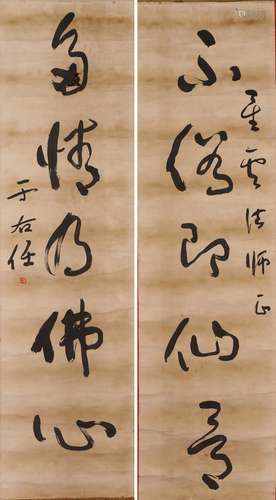 星雲法師正
不俗即仙骨
多情乃佛心
于右任